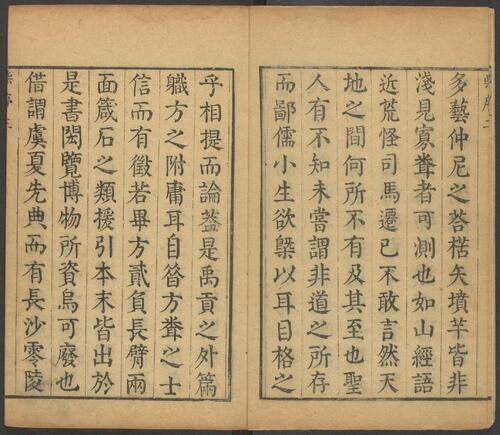 多藝仲尼之荅楛矢墳羊皆非
淺見寡聋者可測也如山經語
近荒怪司馬遷已不敢言然天
地之間何所不有及其至也聖
人有不知未嘗謂非道之所存
而鄙儒小生欲槩以耳目格之
乎相提而論葢是禹貢之外篇
職方之附庸耳自昝方聋之士
信而有徵若畢方貳負長臂兩
面箴石之類援引本末皆出於
是書閎覽博物所資烏可廢也
借謂虞夏先典而有長沙零陵